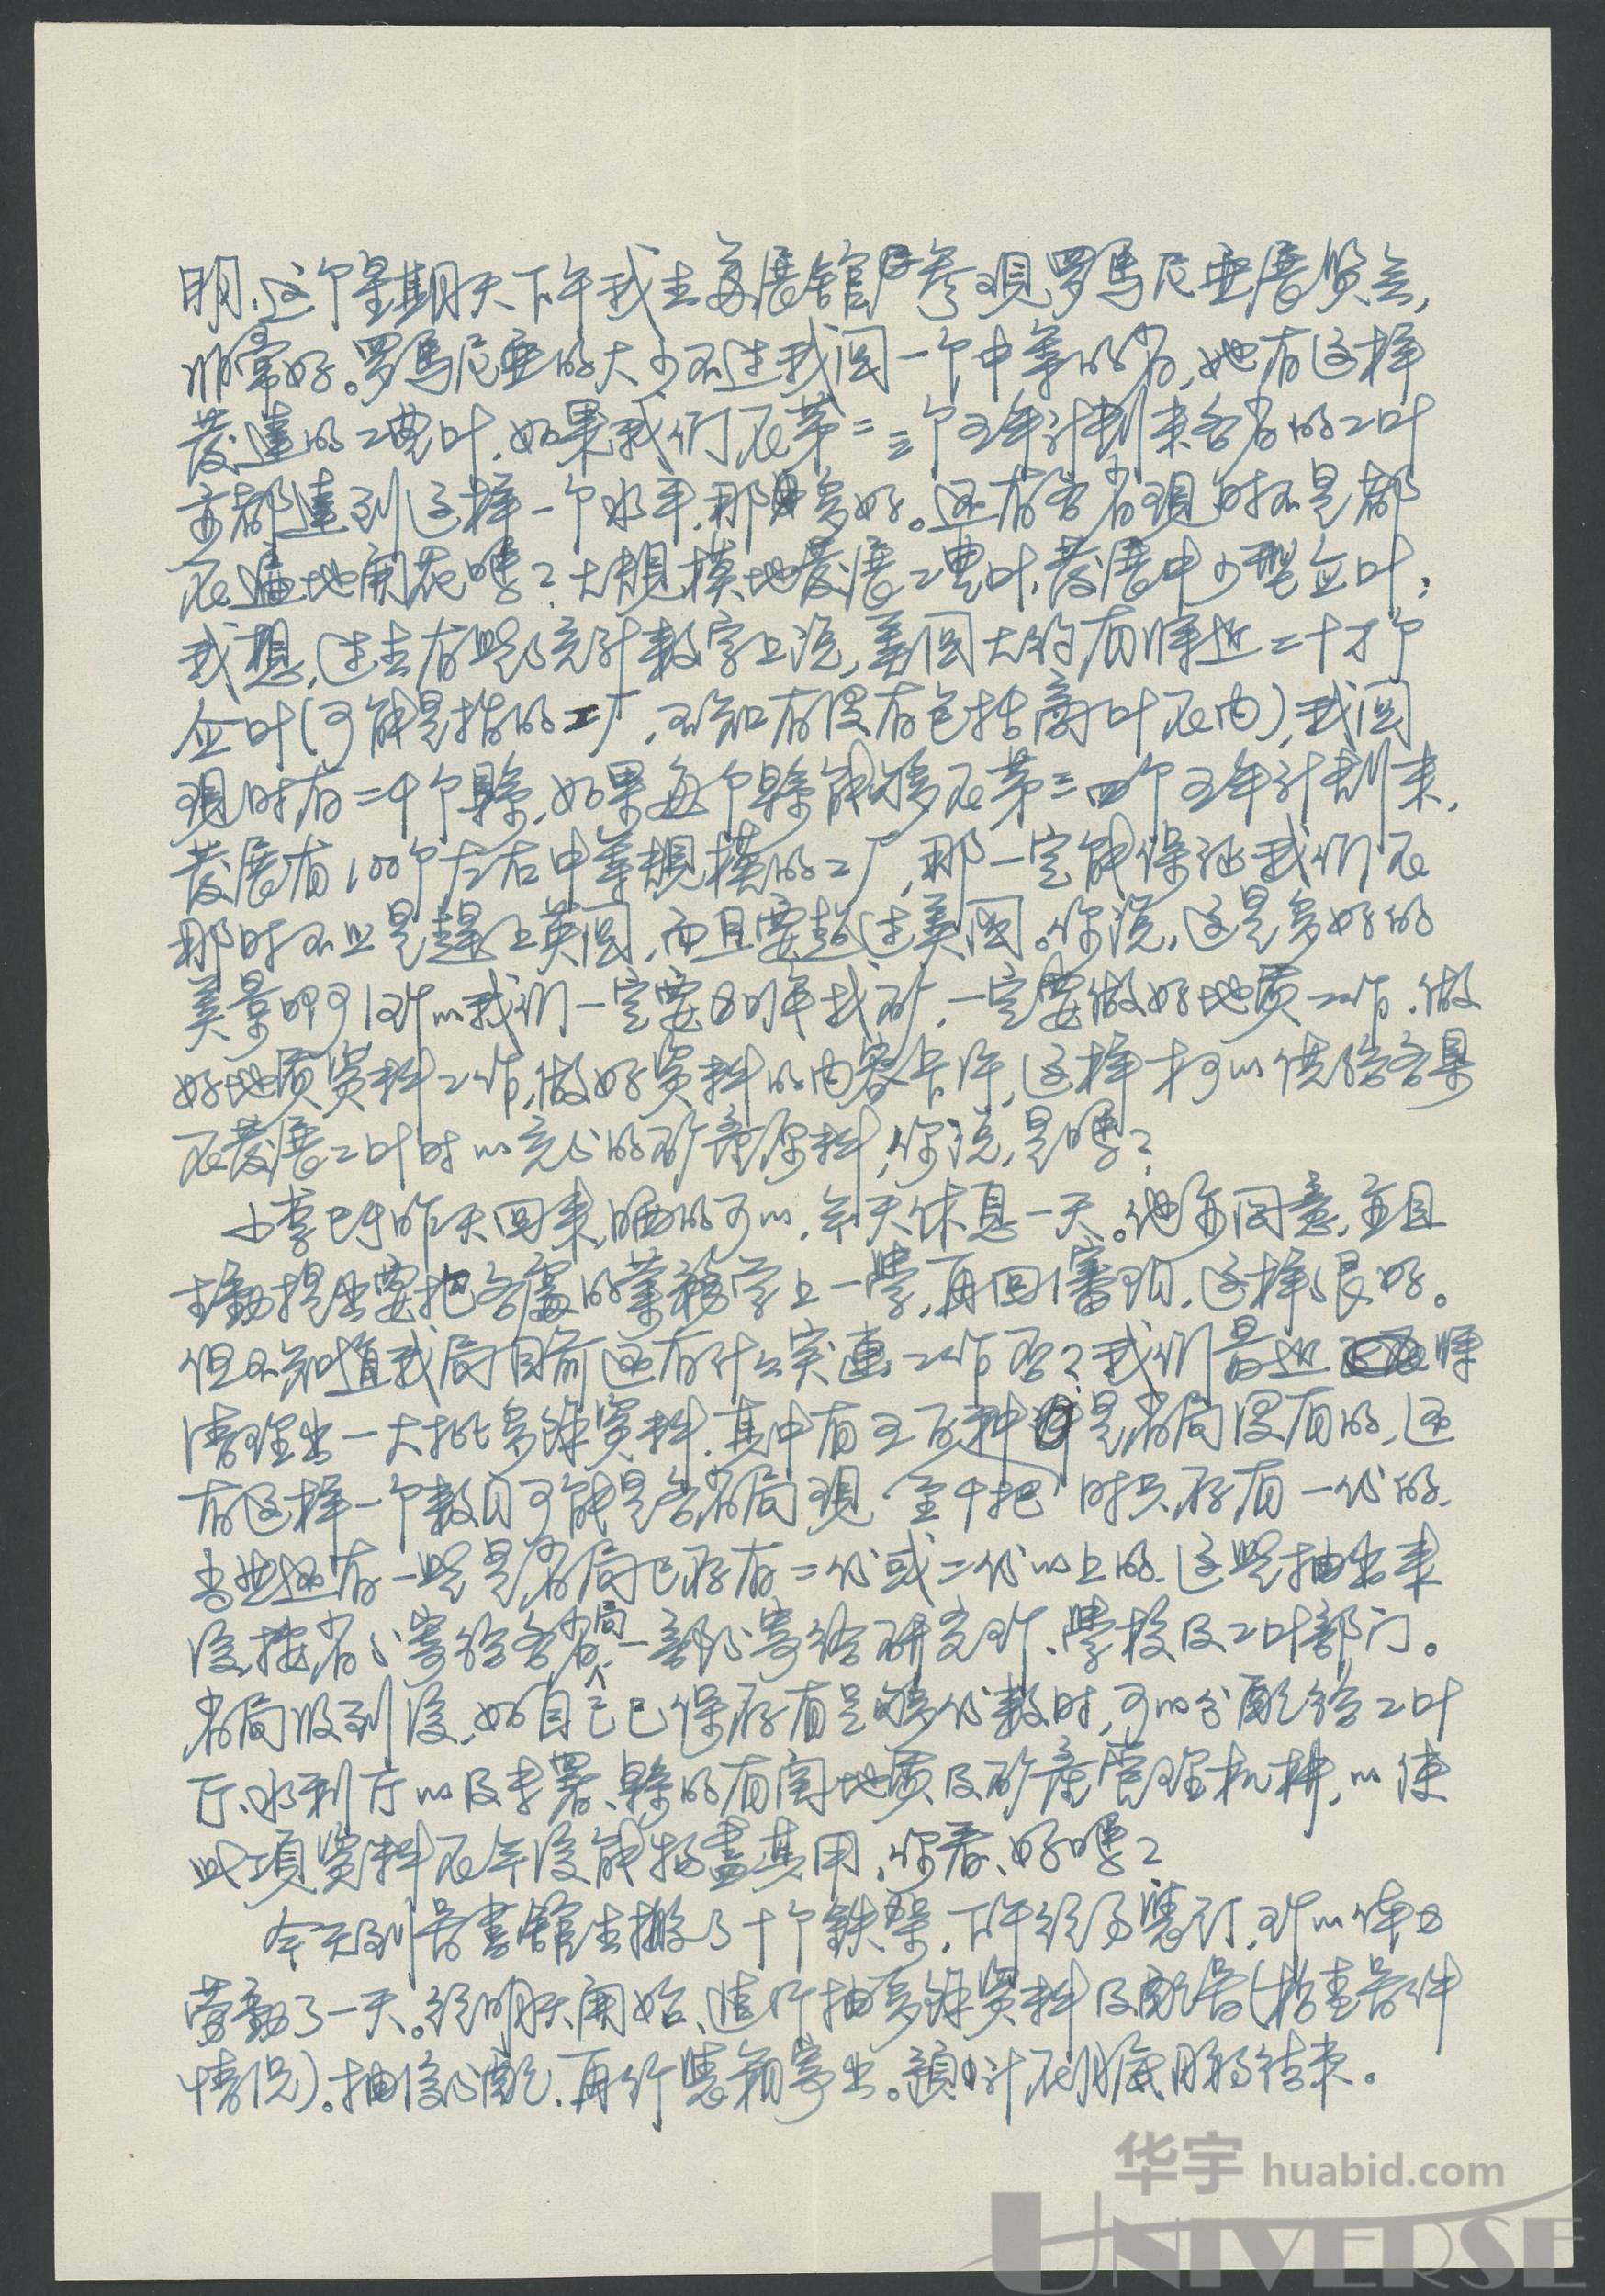 明.这个星期天下午我去苏展馆参观罗馬尼亚展览会,
非常好。罗馬尼亚的大少不过我国一个中等的省,她有这样
發達的工農叶.如果我们在第二三个五年计劃末各省的工叶
亦都達到这样一个水平.那多好。还有各省現时不是都
在遍地開花嗎?大規模地發展工農叶,發展中少型企叶,
我想,过去有些统计数字上说,美国大约有将近二十才个
企叶(可能是指的工厂,不知有没有包括商叶在内),我国
現时有二千个縣,如果每个縣能够在第三四个五年计劃末,
發展有100个左右中等規模的工厂,那一定能保证我们在
那时不只是趕上英国,而且要超过美国。你说,这是多好的
美景啊!所以我们一定要開年找矿,一定要做好地质工作.做
好地质资料工作,做好资料的内容卡片,这样才可以供给各县
在發展工叶时以充分的矿產原料,你说,是嗎?
小李已於昨天回来,晒的可以,今天休息一天。他亦同意,並且
主動提出要把各處的業務学上一學,再回審现,这样很好。
但不知道我局目前还有什么突連工作否?我们最近将
清理出一大批多餘资料.其中有五百种是省局没有的,还
有这样一个数目可能是各省局現时只存有一份的.
当然还有一些是省局已存有二份或二份以上的.这些抽出来
後,按省分寄给各省局,一部份寄给研究所、學校及工叶部门。
省局收到後,如自己已保存有足够份数时,可以分配给工叶
厅、水利厅以及专署、縣的有関地质及矿產管理机构,以使
此項资料在今後能物盡其用,你看、好嗎?
今天到圖書館去搬了十个鉄架,下午经为裝订,所以体力
劳動了一天。经明天開始、進行抽多餘资料及配圖(检查圖件
情况)。抽後分配.再行裝箱寄出。預计在月底前结束。
华宇 huabid.com
UNIVERSE